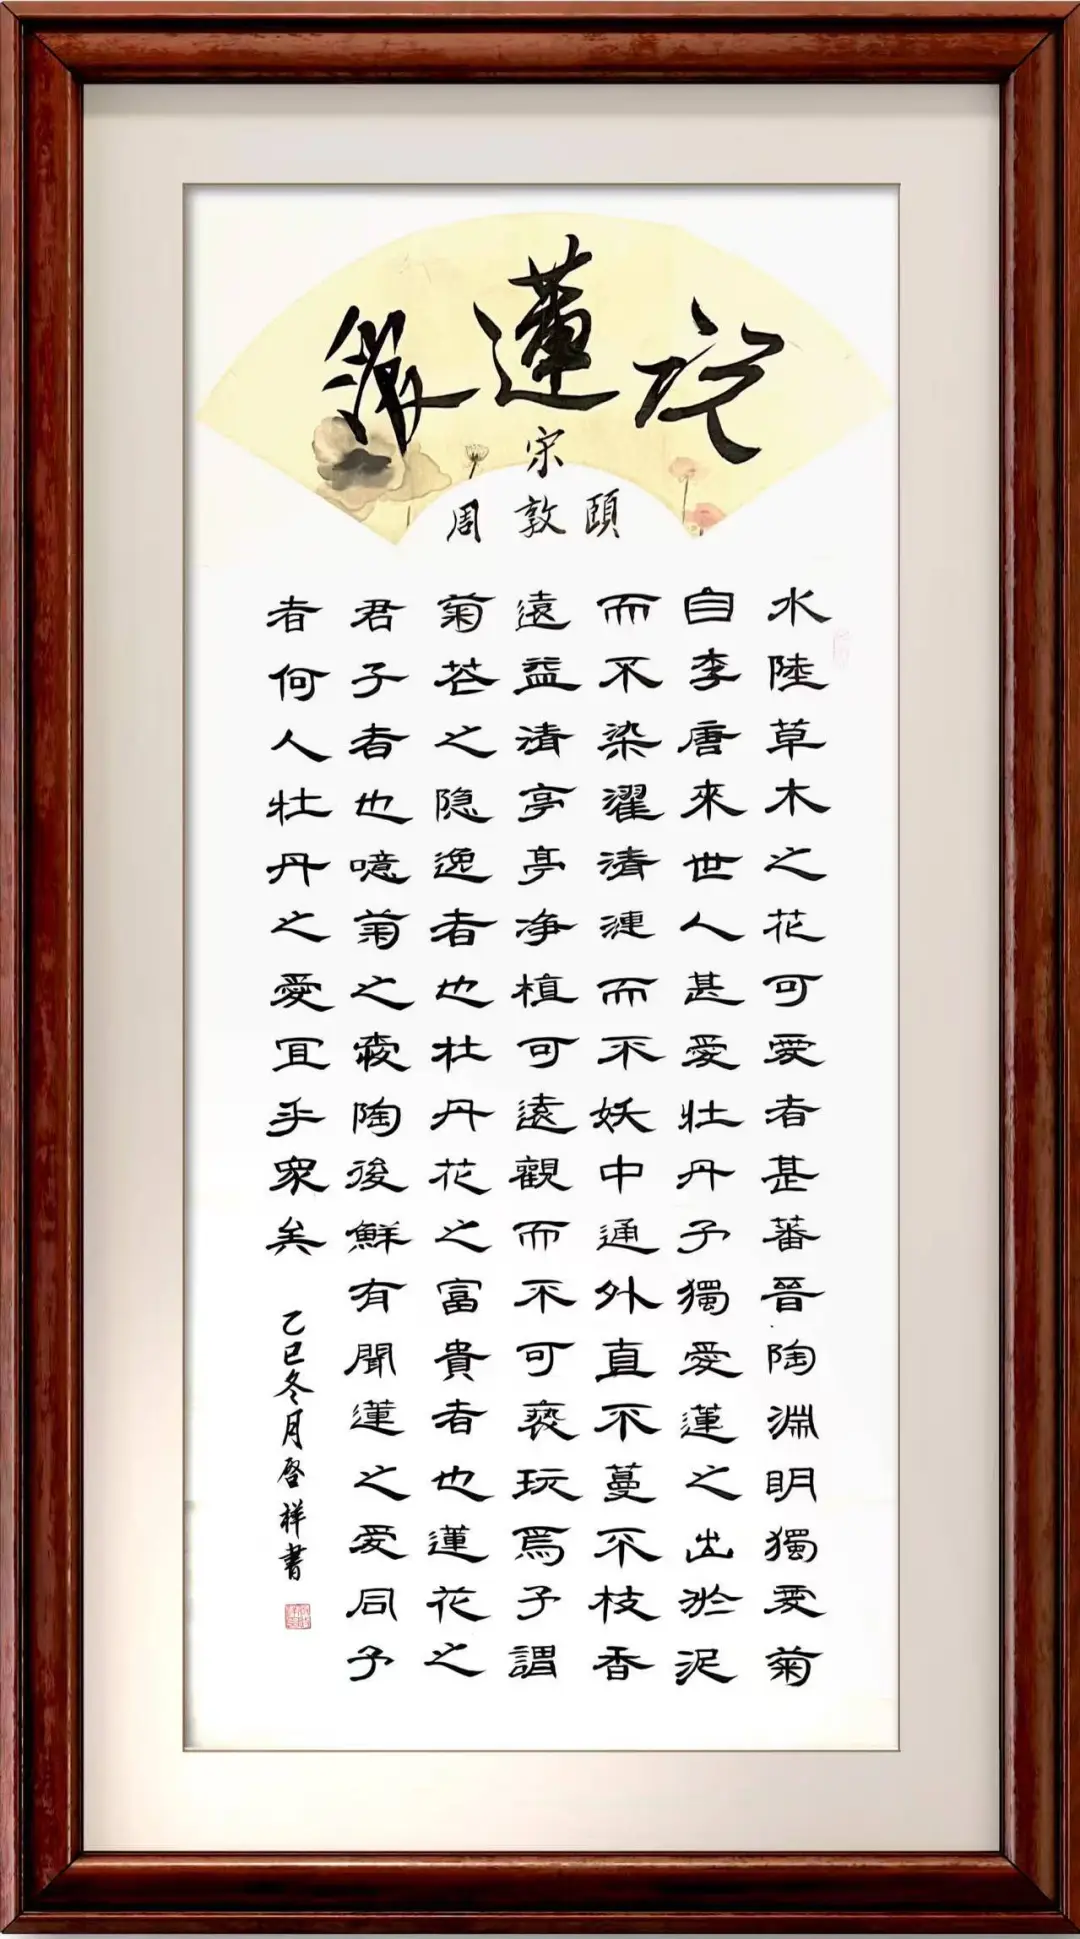 愛蓮説
宋
周敦頤
水陸草木之花可愛者甚蕃晉陶淵明獨愛菊
自李唐來世人甚愛牡丹予獨愛蓮之出淤泥
而不染濯清漣而不妖中通外直不蔓不枝香
遠益清亭亭净植可遠觀而不可褻玩焉予謂
菊芲之隐逸者也牡丹花之富貴者也蓮花之
君子者也噫菊之愛陶後鮮有聞蓮之愛同予
者何人牡丹之愛宜乎眾矣
乙巳冬月啓祥書